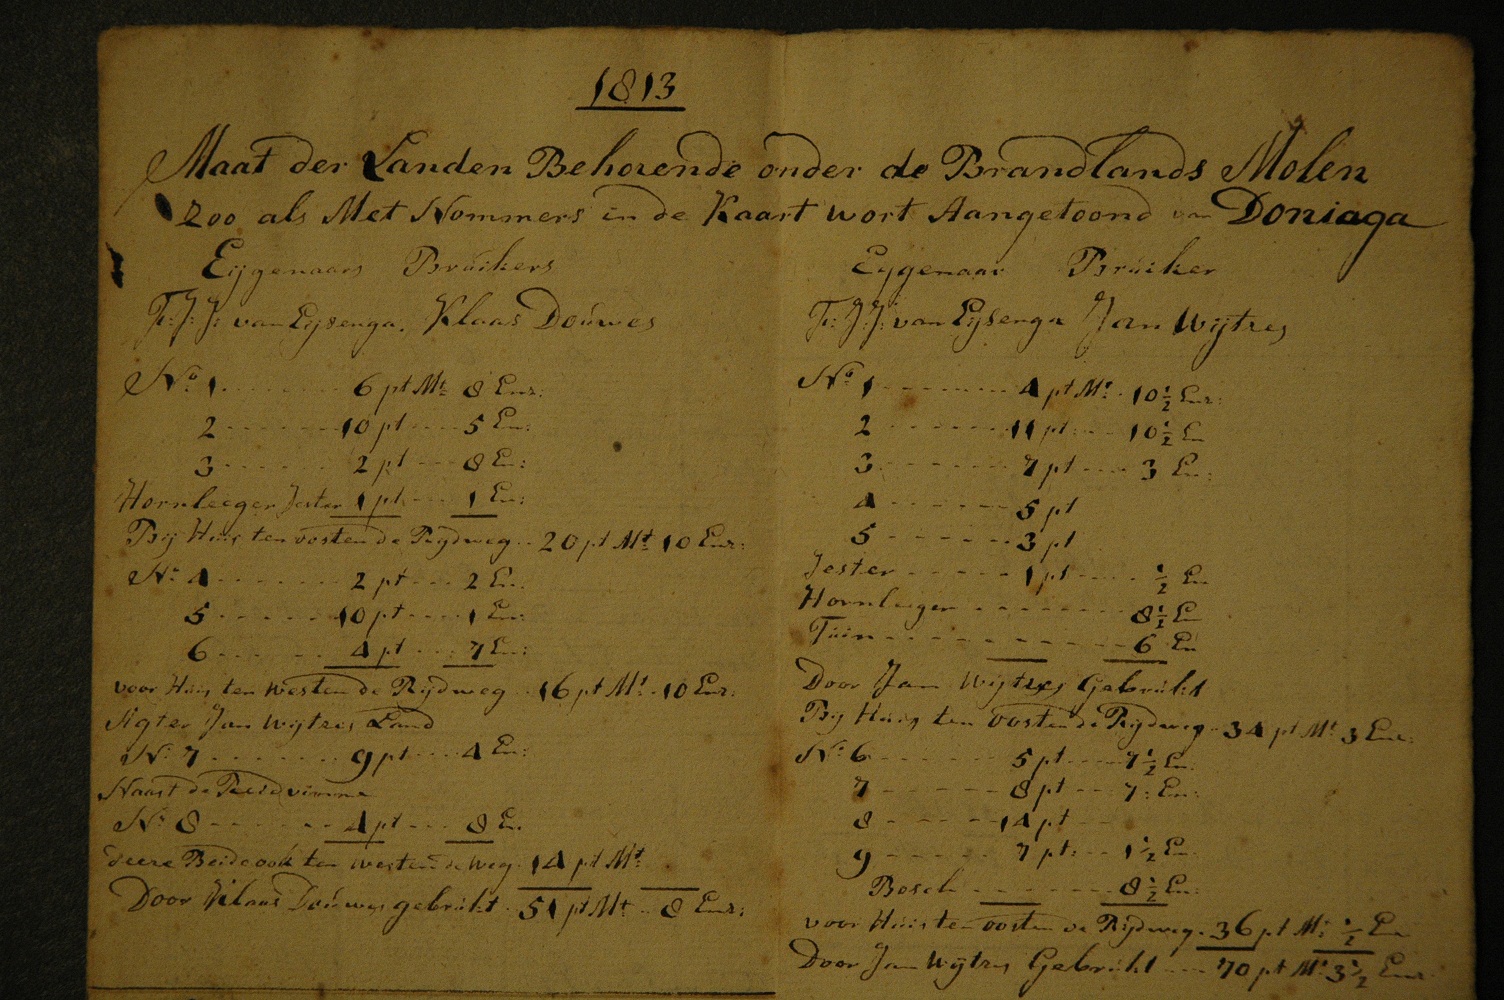 1813
Maat der Landen Behorende onder de Brandlands Molen
zoo als Met Nommers in de Kaart wort Aangetoond van Doniaga
Eijgenaars Bruikers
F: J: J: van Eijsenga. Klaas Douwes
No. 1 6 pt Mt 8 Enz:
2 10 pt 5 En:
3 2 pt 8 En:
Hornleeger Jester 1 pt 1 En:
Bij Huis ten oosten de Rijdweg 20 pt Mt 10 Enz:
No. 4 2 pt 2 En.
5 10 pt 1 En:
6 4 pt 7 En:
voor Huis ten westen de Rijdweg 16 pt Mt 10 Enz:
Agter Jan Wijtzes Land
No. 7 9 pt 4 En:
Naast de
No. 8 4 pt 8 En.
deeze Beide ook ten westen de weg 14 pt Mt
Door Klaas Douwes gebruikt 51 pt Mt 8 Enz:
Eygenaar Bruiker
F: J: J: van Eysenga Jan Wijtzes
No. 1 4 pt Mt 10 1/2 Enz:
2 11 pt 10 1/2 En
3 7 pt 3 En:
4 5 pt
5 3 pt
Jester 1 pt 1/2 En
Hornleeger 8 1/2 En
Tuin 6 En
Door Jan Wijtzes Gebruikt
Bij Huis ten oosten de Rijdweg 34 pt Mt 3 Enz:
No. 6 5 pt 7 1/2 En
7 8 pt 7: En:
8 14 pt
9 7 pt: 1 1/2 En
Bosch 8 1/2 En:
voor Huis ten oosten de Rijdweg 36 pt Mt 1/2 En
Door Jan Wijtzes Gebruikt 70 pt Mt 3 1/2 Enz